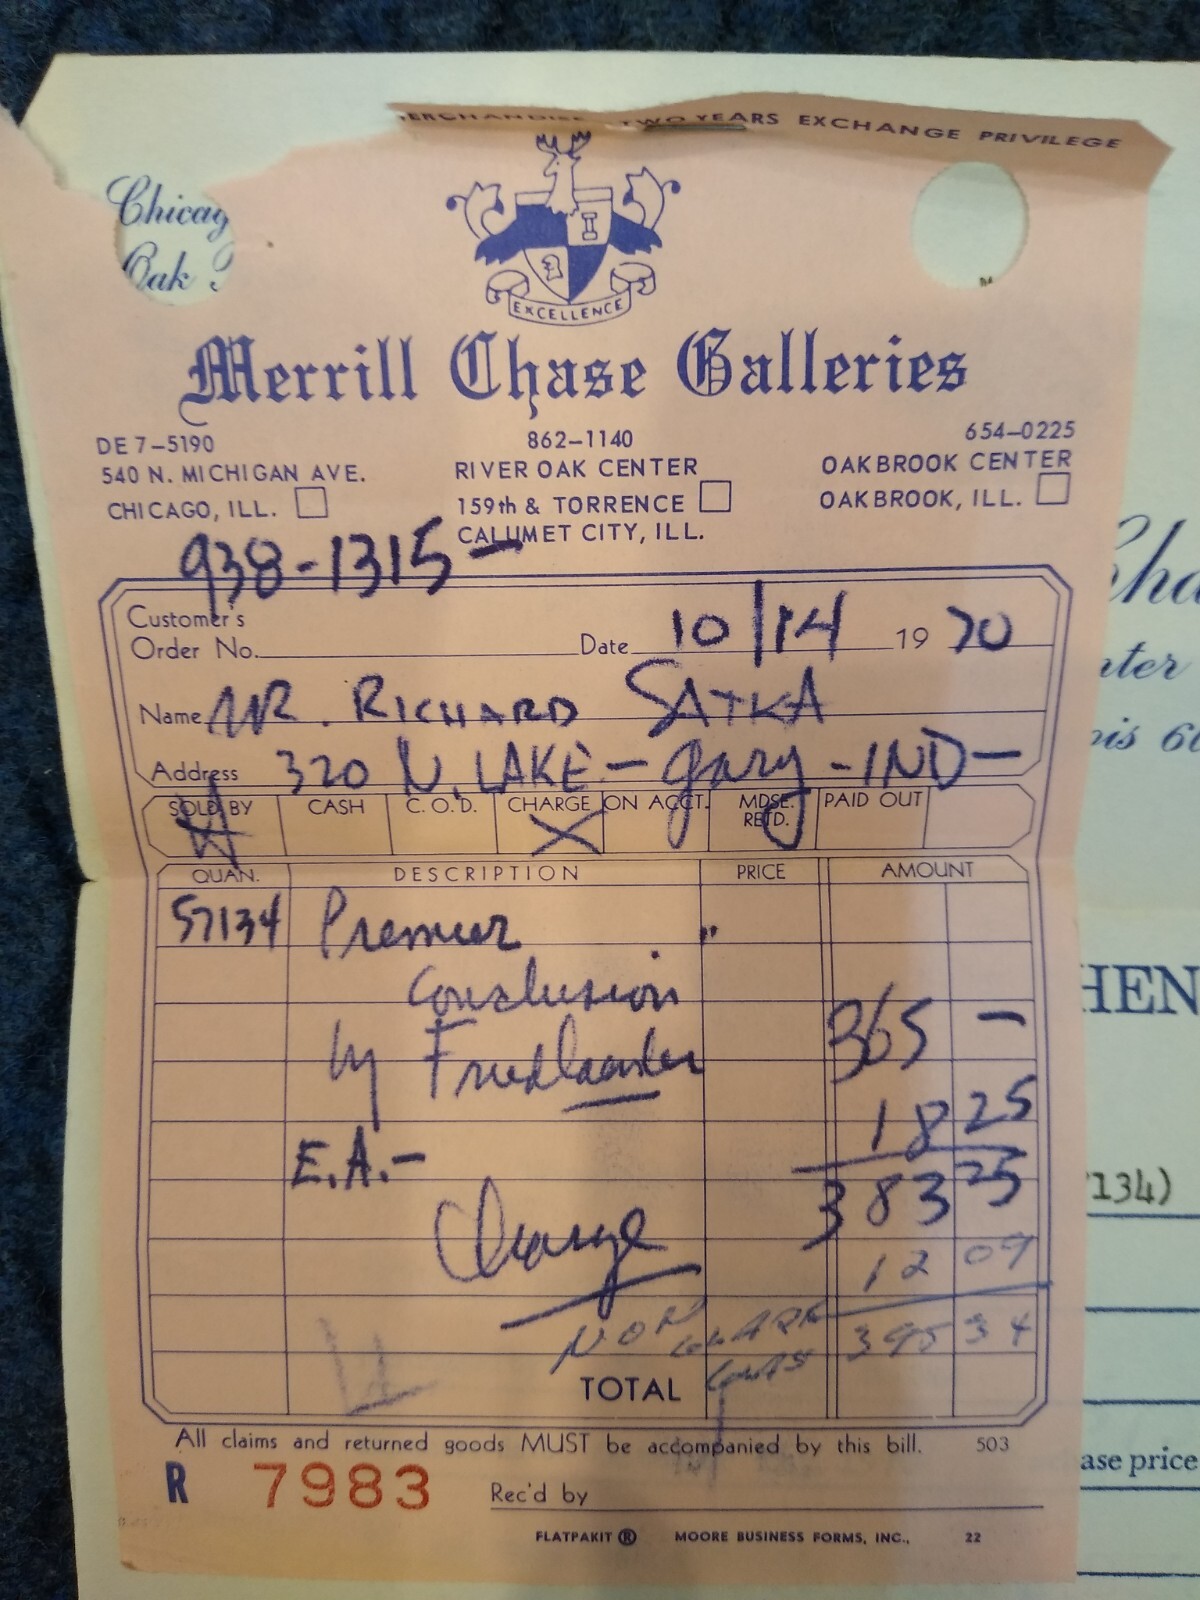 MERCHANDISE TWO YEARS EXCHANGE PRIVILEGE
Chicag
Oak
EXCELLENCE
Merrill Chase Galleries
DE 7-5190
540 N. MICHIGAN AVE.
CHICAGO, ILL.
862-1140
RIVER OAK CENTER
159th & TORRENCE
CALUMET CITY, ILL.
654-0225
OAKBROOK CENTER
OAKBROOK, ILL.
938-1315-
Customer's
Order No. Date 10/14 19 70
Name MR. RICHARD SATKA
Address 320 N. LAKE - Gary - IND -
SOLD BY CASH C.O.D. CHARGE ON ACCT. MDSE. RETD. PAID OUT
X
QUAN. DESCRIPTION PRICE AMOUNT
57134 Premier "
Conclusion
by Friedlaender 365 -
18 25
E.A. - 383 25
Charge 12 09
NON 395 34
TOTAL
All claims and returned goods MUST be accompanied by this bill. 503
R 7983 Rec'd by
FLATPAKIT ® MOORE BUSINESS FORMS, INC., 22
Cha
nter
ois 60
HEN
7134)
ase price